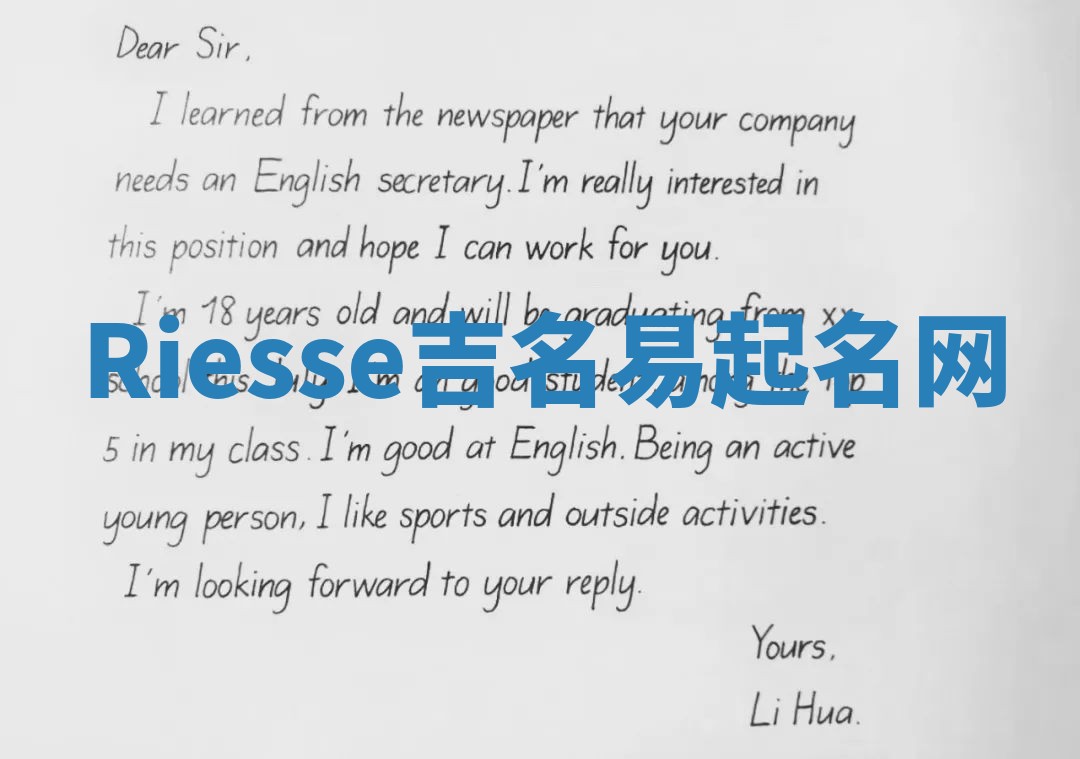 Dear Sir,
I learned from the newspaper that your company
needs an English secretary. I'm really interested in
this position and hope I can work for you.
I'm 18 years old and will be graduating from xx
Riesse吉名易起名网
school this July. I'm good student among the Top
5 in my class. I'm good at English. Being an active
young person, I like sports and outside activities.
I'm looking forward to your reply.
Yours,
Li Hua.